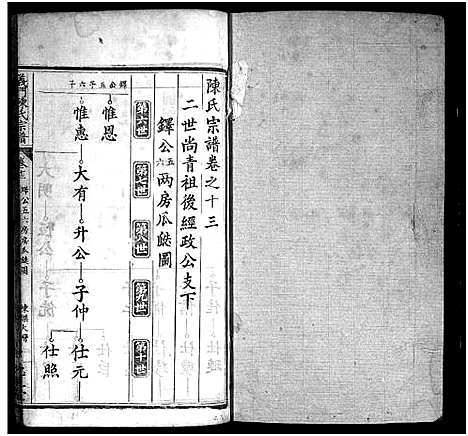 陳氏宗譜卷之十三
二世尚青祖後經政公支下
鐸公五六兩房瓜瓞圖
第六世
第七世
第八世
第九世
第十世
鐸公五子六子
惟恩
惟惠
大有
升公
子仲
仕元
仕照
義門陳氏宗譜